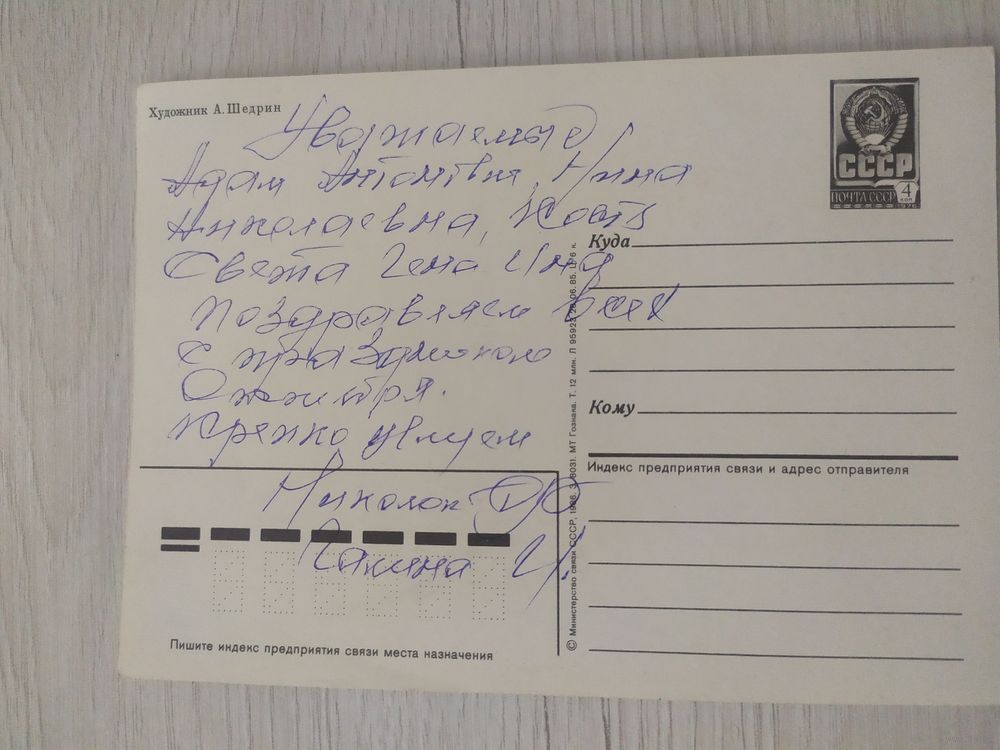 Художник А. Щедрин
Уважаемые
Адам Антонтвич, Нина
Николаевна, Костя
Света Гена Инна
поздравляем всех
с праздником
Октября.
Крепко целуем
Николай
Галина
СССР
ПОЧТА СССР
4
коп
1976
Куда
Кому
Индекс предприятия связи и адрес отправителя
Пишите индекс предприятия связи места назначения
© Министерство связи СССР, 1986. З. 8031. МТ Гознака. Т. 12 млн. Л 95923 06. 85. Ц. 6 к.